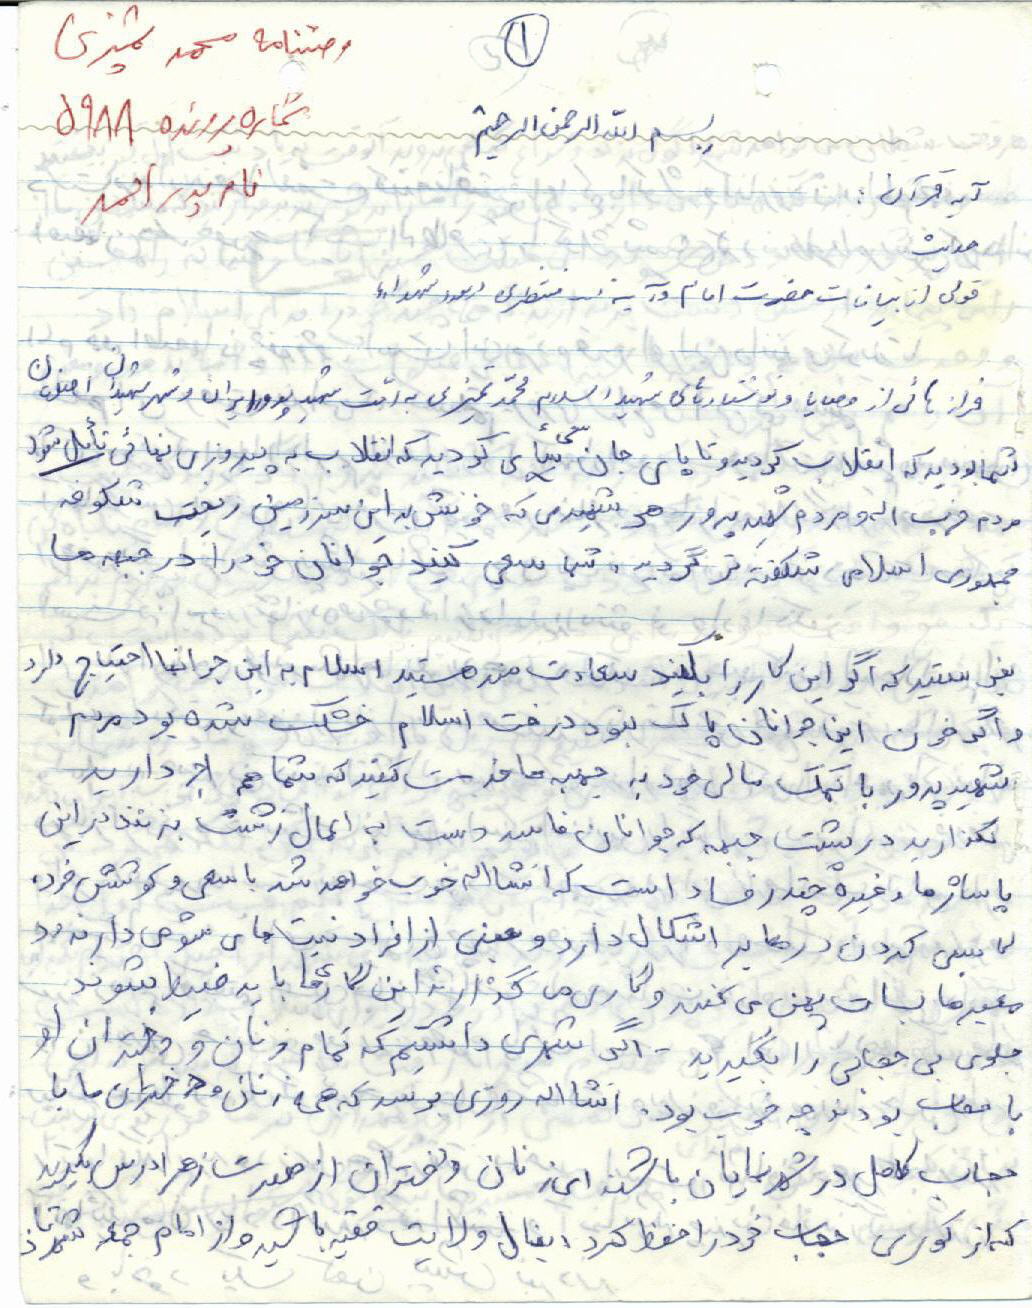 وصیتنامه محمد
شماره پرونده ۵۹۸۸
نام پدر احمد
۱
بسم الله الرحمن الرحیم
آیه قرآن :
حدیث
قولی از بیانات حضرت امام و آیة ... منتظری در مورد شهداء
فراز هائی از وصایا و نوشته های شهید اسلام محمد به امت شهید پرور ایران و شهر شهیدان اصفهان
شما بودید که انقلاب کردید و تا پای جان سعی کردید که انقلاب به پیروزی نهائی نائل شود
مردم حزب اله و مردم شهید پرور هر شهیدی که خونش به این سرزمین ریخت شکوفه
جمهوری اسلامی شکفته تر گردید، شما سعی کنید جوانان خود را در جبهه ها
بفرستید که اگر این کار را بکنید سعادت مند هستید اسلام به این جوانها احتیاج دارد
و اگر خون این جوانان پاک نبود درخت اسلام خشک شده بود مردم
شهید پرور با کمک مالی خود به جبهه ها خدمت کنید که شما هم اجر دارید
نگذارید در پشت جبهه که جوانان فاسد دست به اعمال زشت بزنند در این
پاساژها و غیره چقدر فساد است که انشااله خوب خواهد شد با سعی و کوشش فرد،
لباسی کردن در معابر اشکال دارد و بعضی از افراد نیت های شومی دارند در
معبرها بساط پهن می کنند و گاری می گذارند این ها باید بشوند
جلوی بی حجابی را بگیرید - اگر شهری داشتیم که تمام زنان و دختران او
با حجاب بودند چه خوب بود. انشااله روزی برسد که همه زنان و دختران ما با
حجاب کامل در شهر نمایان باشند ای زنان و دختران از حضرت زهرا درس بگیرید
که از کوری حجاب خود را حفظ کرد، ولایت فقیه باشید و از امام جمعه شهرتان